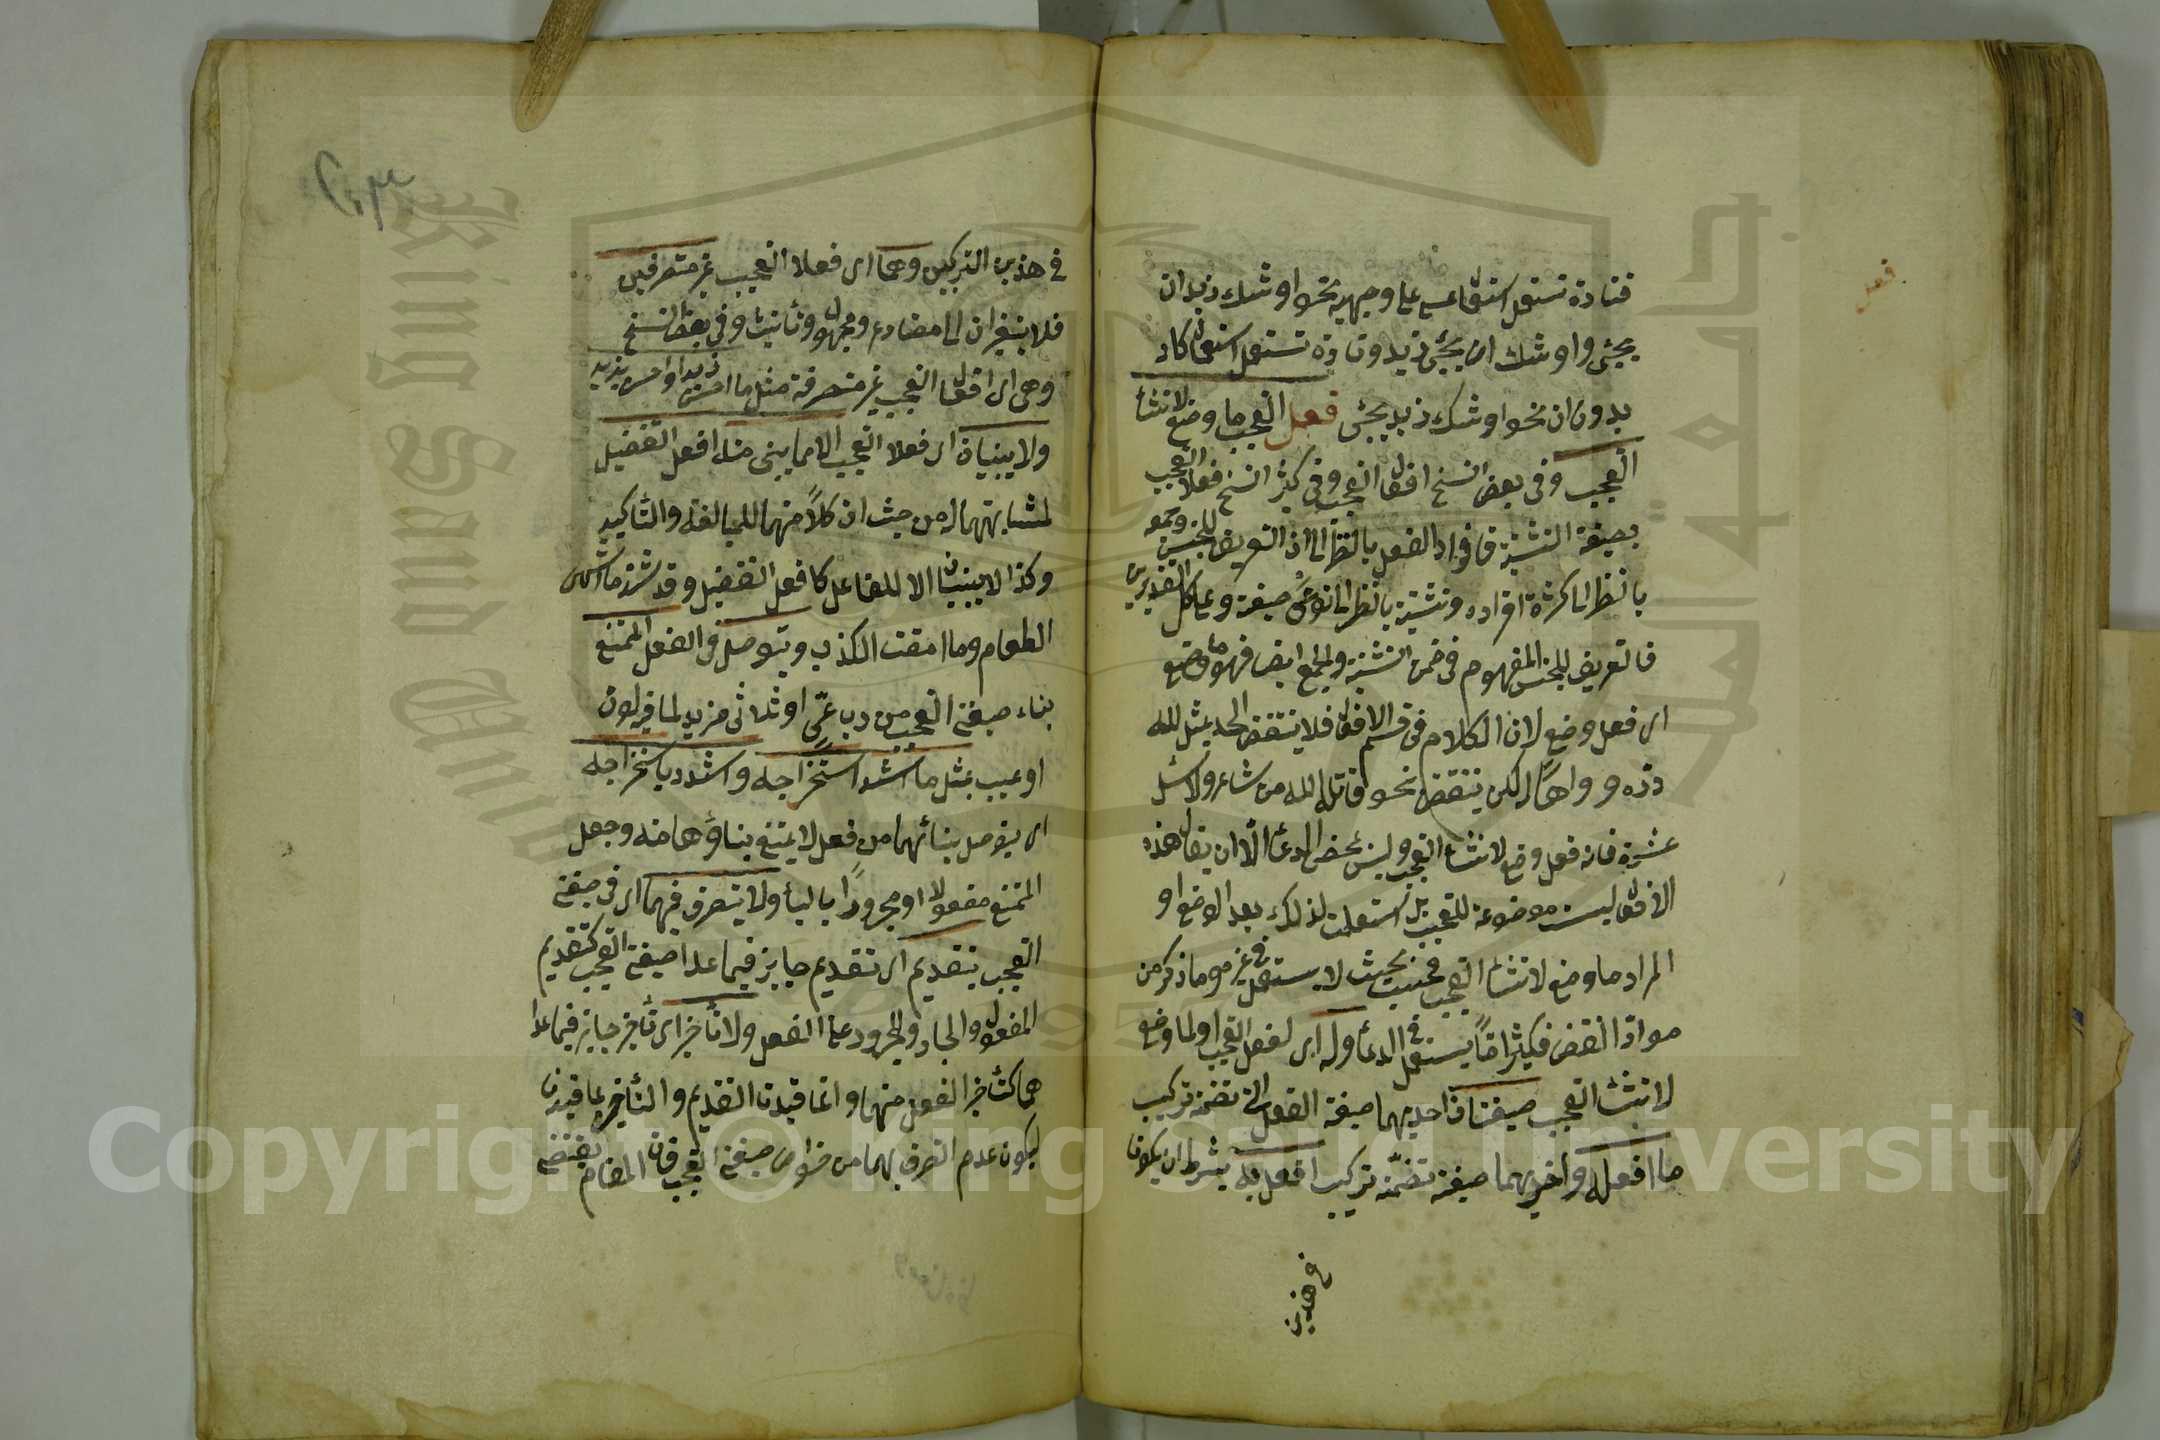 فتارة تستعمل استعمال عسى على وجهيه نحو اوشك زيد ان
يجئ واوشك ان يجئ زيد وتارة تستعمل استعمال كاد
بدون ان نحو اوشك زيد يجئ فعل التعجب ما وضع لانشاء
التعجب وفى بعض النسخ افعال التعجب وفى كثير النسخ فعلا التعجب
بصيغة التثنية فافراد الفعل بالنظر الى ان التعريف للجنس وجمعه
بالنظر الى كثرة افراده وتثنيته بالنظر الى نوعى صيغة وعلى كل التقديرين
فالتعريف للجنس المفهوم فى ضمن التثنية والجمع ايضا فهو ما وضع
اى فعل وضع لان الكلام فى قسم الافعال فلا ينتقض الحد بمثل لله
درّه وواهاً له لكن ينتقض نحو قاتله الله من شاعر ولا شل
عشره فانه فعل وضع لانشاء التعجب وليس بمحض الدعاء الّا ان يقال هذه
الافعال ليست موضوعة للتعجب بل استعملت لذلك بعد الوضع او
المراد ما وضع لانشاء التعجب فحسب بحيث لا يستعمل فى غيره وما ذكر من
موادّ النقض فكثيرا مّا يستعمل فى الدعاء وله اى لفعل التعجب او لما وضع
لانشاء التعجب صيغتان احديهما صيغة الفعل التى تضمنه تركيب
ما افعله واخريهما صيغة تضمّنه تركيب افعل به بشرط ان يكون
فى هذين
فعل
فى هذين التركيبين وهما اى فعلا التعجب غير متصرفين
فلا يتغيران الى مضارع ومجهول وتأنيث وفى بعض النسخ
وهى اى افعال التعجب غير متصرفة مثل ما احسن زيدا واحسن بزيد
ولا يبنيان اى فعلا التعجب الا مما يبنى منه افعل التفضيل
لمشابهتهما له من حيث ان كلاً منهما للمبالغة والتاكيد
وكذا لا يبنيان الا للفاعل كافعل التفضيل وقد شذ ما اشهى
الطعام وما امقت الكذب ويتوصل فى الفعل الممتنع
بناء صيغة التعجب من رباعىّ او ثلاثى مزيد لما فيه لون
او عيب بمثل ما اشد استخراجه واشدد باستخراجه
اى يتوصل ببنائهما من فعل لا يمتنع بناؤهما منه وجعل
الممتنع مفعولا او مجروراً بالباء ولا يتصرف فيهما اى فى صيغة
التعجب بتقديم اى تقديم جايز فيما عدا صيغة التعجب كتقديم
المفعول والجار والمجرور على الفعل ولا تأخير اى تأخير جايز فيما عدا
هما كتأخير الفعل منهما وانما قيدنا التقديم والتأخير بما قيدنا
ليكون عدم التصرف بهما من خواص صيغة التعجب فان المقام يقتضى
جامعة الملك سعود
King Saud University
1957
Copyright © King Saud University